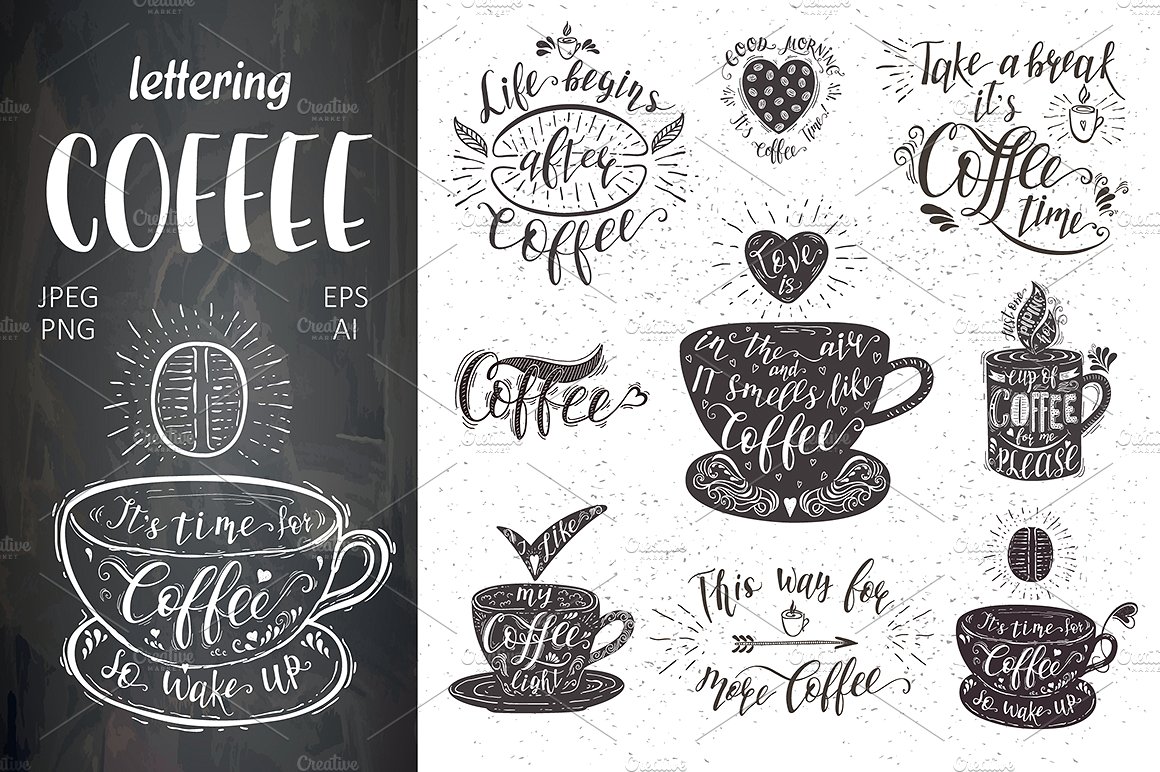 lettering
COFFEE
JPEG
PNG
EPS
AI
It's time for
Coffee
so wake up
Life begins
after
Coffee
GOOD MORNING
It's
Coffee
time
Take a break
it's
Coffee
time
Love
is
in the air
and
IT smells like
Coffee
Coffee
just one
cup of
COFFEE
for me
PLEASE
I Like
my
Coffee
light
This way for
more Coffee
It's time for
Coffee
so wake up
Creative
MARKET